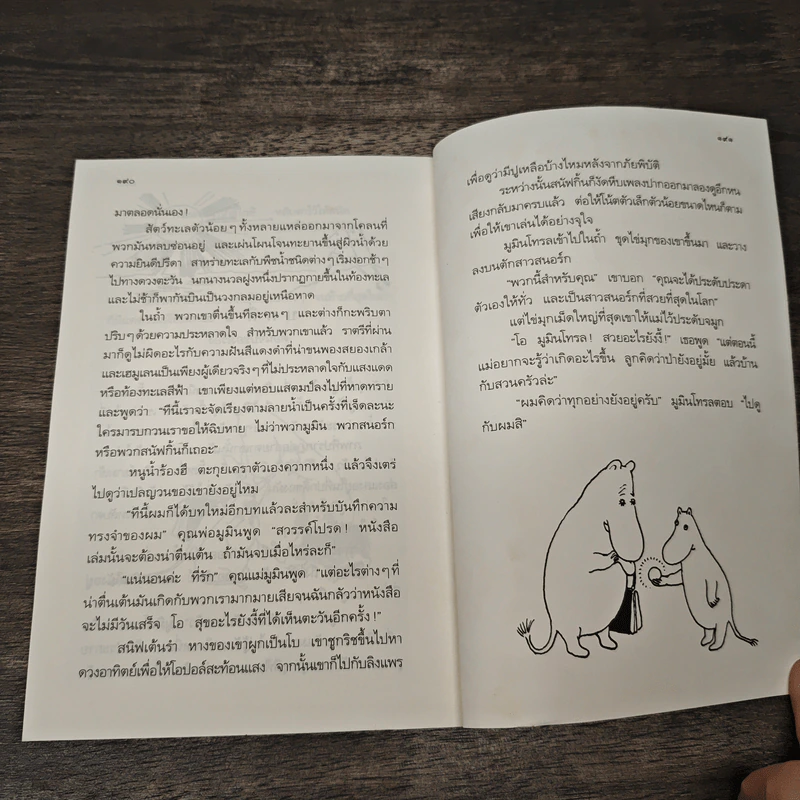 ๑๙๐
มาตลอดนั่นเอง!
สัตว์ทะเลตัวน้อยๆ ทั้งหลายแหล่ออกมาจากโคลนที่
พวกมันหลบซ่อนอยู่ และเผ่นโผนโจนทะยานขึ้นสู่ผิวน้ำด้วย
ความยินดีปรีดา สาหร่ายทะเลกับพืชน้ำชนิดต่างๆ เริ่มงอกช้าๆ
ไปทางดวงตะวัน นกนางนวลฝูงหนึ่งปรากฏกายขึ้นในท้องทะเล
และไม่ช้าก็พากันบินเป็นวงกลมอยู่เหนือหาด
ในถ้ำ พวกเขาตื่นขึ้นทีละคนๆ และต่างก็กะพริบตา
ปริบๆ ด้วยความประหลาดใจ สำหรับพวกเขาแล้ว ราตรีที่ผ่าน
มาก็ดูไม่ผิดอะไรกับความฝันสีแดงดำที่น่าขนพองสยองเกล้า
และเฮมูเลนเป็นเพียงผู้เดียวจริงๆ ที่ไม่ประหลาดใจกับแสงแดด
หรือท้องทะเลสีฟ้า เขาเพียงแต่หอบแสตมป์ลงไปที่หาดทราย
และพูดว่า "ทีนี้เราจะจัดเรียงตามลายน้ำเป็นครั้งที่เจ็ดละนะ
ใครมารบกวนเราขอให้ฉิบหาย ไม่ว่าพวกมูมิน พวกสนอร์ก
หรือพวกสนัฟกิ้นก็เถอะ"
หนูน้ำร้องฮึ ตะกุยเคราตัวเองควากหนึ่ง แล้วจึงเตร่
ไปดูว่าเปลญวนของเขายังอยู่ไหม
"ทีนี้ผมก็ได้บทใหม่อีกบทแล้วละสำหรับบันทึกความ
ทรงจำของผม" คุณพ่อมูมินพูด "สวรรค์โปรด! หนังสือ
เล่มนั้นจะต้องน่าตื่นเต้น ถ้ามันจบเมื่อไหร่ละก็"
"แน่นอนค่ะ ที่รัก" คุณแม่มูมินพูด "แต่อะไรต่างๆ ที่
น่าตื่นเต้นมันเกิดกับพวกเรามากมายเสียจนฉันกลัวว่าหนังสือ
จะไม่มีวันเสร็จ โอ สุขอะไรยังงี้ที่ได้เห็นตะวันอีกครั้ง!"
สนิฟเต้นรำ หางของเขาผูกเป็นโบ เขาชูกริชขึ้นไปหา
ดวงอาทิตย์เพื่อให้โอปอล์สะท้อนแสง จากนั้นเขาก็ไปกับลิงแพร
๑๙๑
เพื่อดูว่ามีปูเหลือบ้างไหมหลังจากภัยพิบัติ
ระหว่างนั้นสนัฟกิ้นก็งัดหีบเพลงปากออกมาลองดูอีกหน
เสียงกลับมาครบแล้ว ต่อให้โน้ตตัวเล็กตัวน้อยขนาดไหนก็ตาม
เพื่อให้เขาเล่นได้อย่างจุใจ
มูมินโทรลเข้าไปในถ้ำ ขุดไข่มุกของเขาขึ้นมา และวาง
ลงบนตักสาวสนอร์ก
"พวกนี้สำหรับคุณ" เขาบอก "คุณจะได้ประดับประดา
ตัวเองให้ทั่ว และเป็นสาวสนอร์กที่สวยที่สุดในโลก"
แต่ไข่มุกเม็ดใหญ่ที่สุดเขาให้แม่ไว้ประดับจมูก
"โอ มูมินโทรล! สวยอะไรยังงี้!" เธอพูด "แต่ตอนนี้
แม่อยากจะรู้ว่าเกิดอะไรขึ้น ลูกคิดว่าป่ายังอยู่มั้ย แล้วบ้าน
กับสวนครัวล่ะ"
"ผมคิดว่าทุกอย่างยังอยู่ครับ" มูมินโทรลตอบ "ไปดู
กับผมสิ"